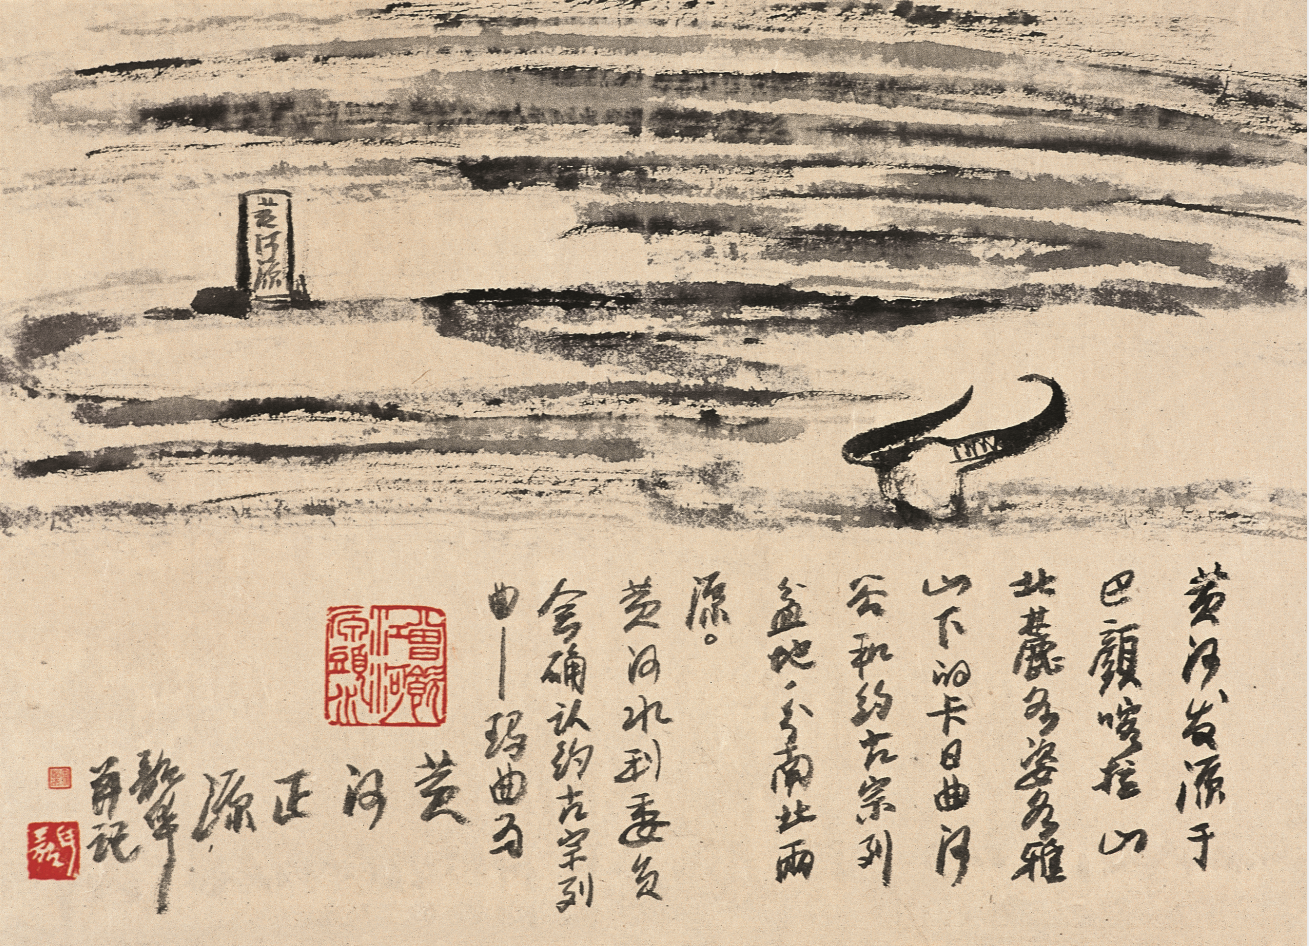 黄河源
黄河发源于
巴顔喀拉山
北麓各姿各雅
山下的卡日曲河
谷和约古宗列
盆地，分南北兩
源。
黄河水利委员
会确认约古宗列
曲—玛曲为
黄河正源
并记
曾飲江河源頭水